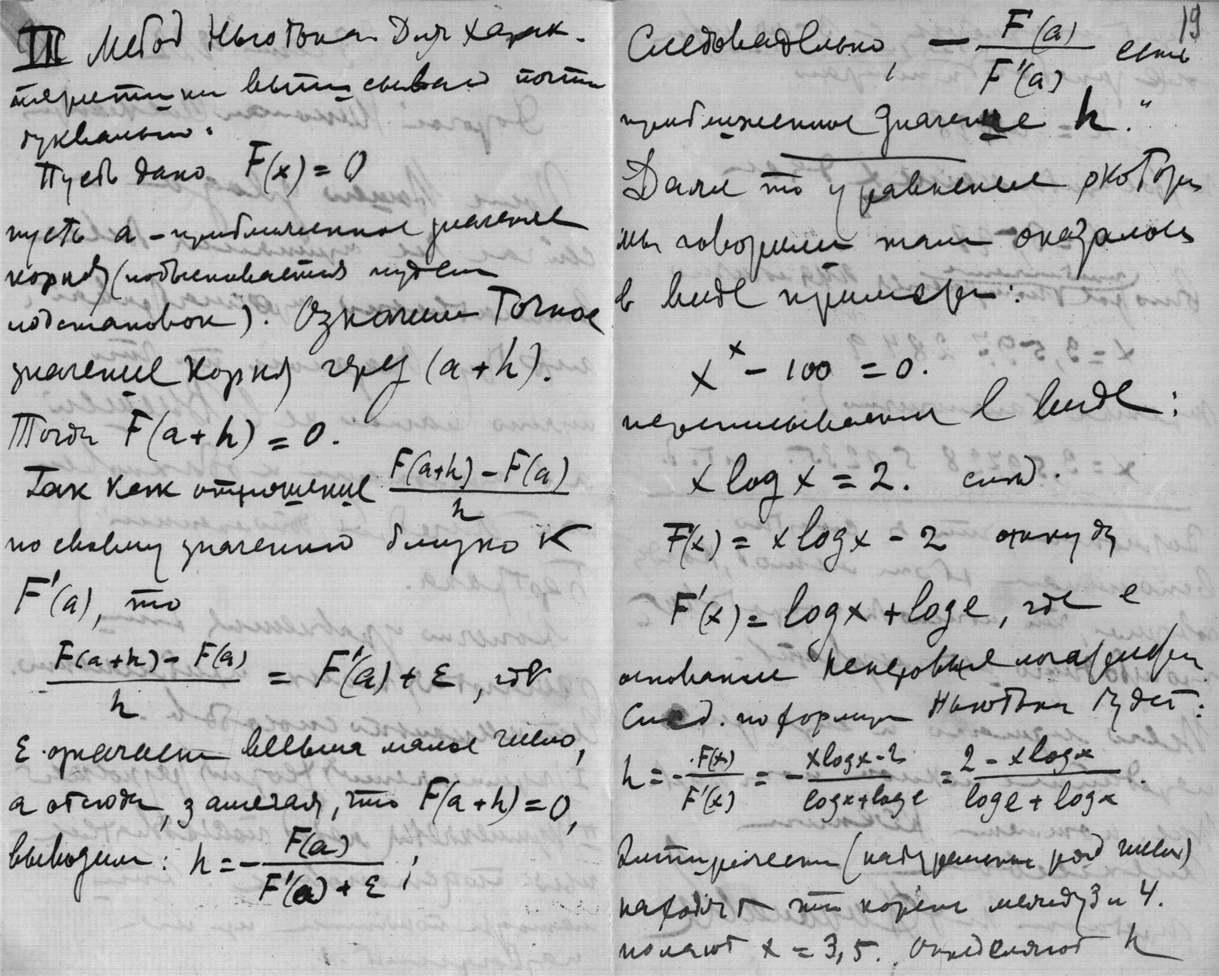 III Метод Ньютона Для харак-
теристики выписываю почти
буквально:
Пусть дано F(x) = 0
пусть a – приближенное значение
корня (подыскивается путем
подстановок). Означим Точное
значение корня через (a+h).
Тогда F(a+h) = 0.
Так как отношение \frac{F(a+h) – F(a)}{h}
по своему значению близко к
F'(a), то
\frac{F(a+h) – F(a)}{h} = F'(a) + ε, где
ε означает весьма малое число,
а отсюда, замечая, что F(a+h)=0,
выводим: h = – \frac{F(a)}{F'(a) + ε};
19
Следовательно, – \frac{F(a)}{F'(a)} есть
приближенное значение h."
Далее то уравнение
мы говорили там оказалось
в виде примера:
x^x – 100 = 0.
переписываем в виде:
x log x = 2. след.
F(x) = x log x – 2 откуда
F'(x) = log x + log e, где e
основание Неперовых логарифм.
След. по формуле Ньютона будет:
h = – \frac{F(x)}{F'(x)} = – \frac{x log x – 2}{log x + log e} = \frac{2 – x log x}{log e + log x}.
находят что корень между 3 и 4.
полагают x = 3,5. Определяют h